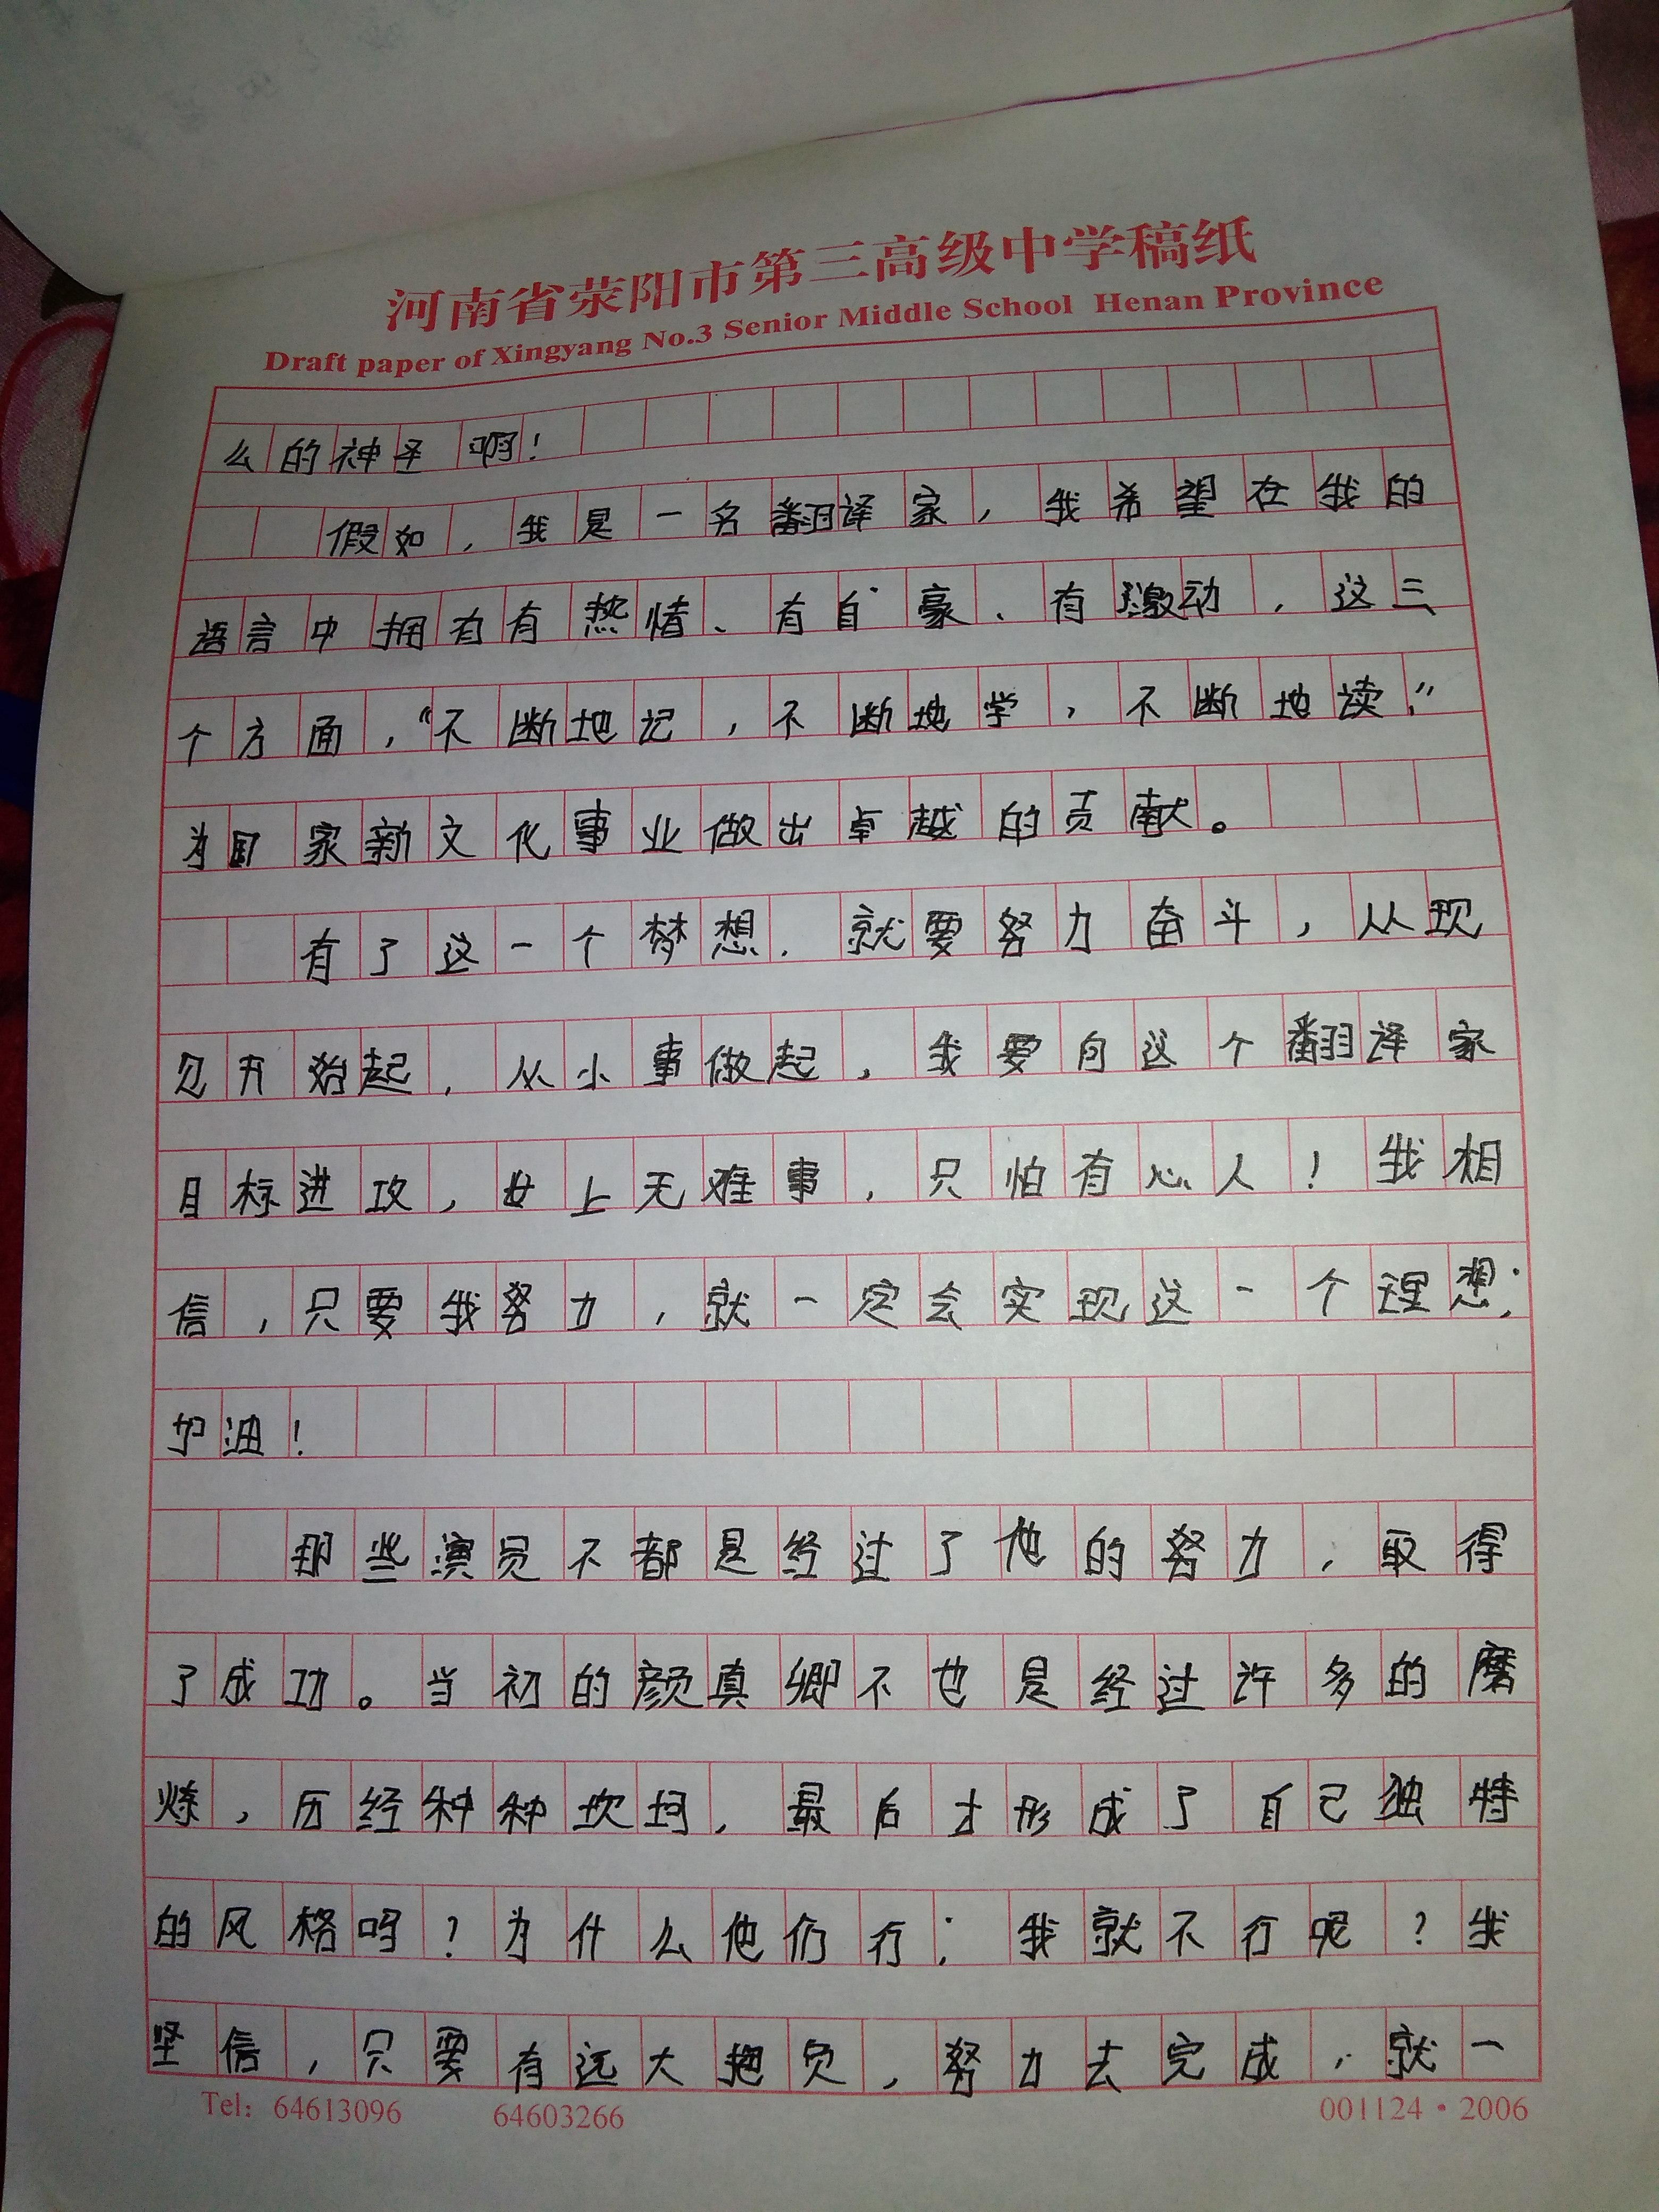 河南省荥阳市第三高级中学稿纸
Draft paper of Xingyang No.3 Senior Middle School Henan Province
么的神圣啊!
假如,我是一名翻译家,我希望在我的
语言中拥有有热情、有自豪、有激动,这三
个方面,“不断地记,不断地学,不断地读,”
为国家新文化事业做出卓越的贡献。
有了这一个梦想,就要努力奋斗,从现
刻开始起,从小事做起,我要向这个翻译家
目标进攻,世上无难事,只怕有心人!我相
信,只要我努力,就一定会实现这一个理想,
加油!
那些演员不都是经过了他的努力,取得
了成功。当初的颜真卿不也是经过许多的磨
炼,历经种种坎坷,最后才形成了自己独特
的风格吗?为什么他们行,我就不行呢?我
坚信,只要有远大抱负,努力去完成,就一
Tel: 64613096 64603266 001124·2006